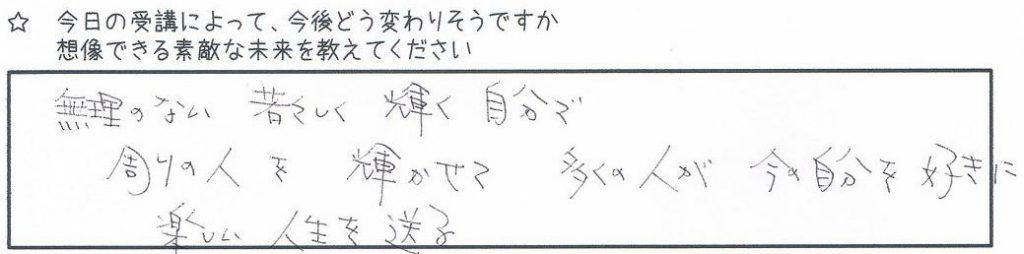 ☆ 今日の受講によって、今後どう変わりそうですか
想像できる素敵な未来を教えてください
無理のない 若々しく 輝く 自分で
周りの人を 輝かせて 多くの人が 今の自分を好きに
楽しい 人生を 送る